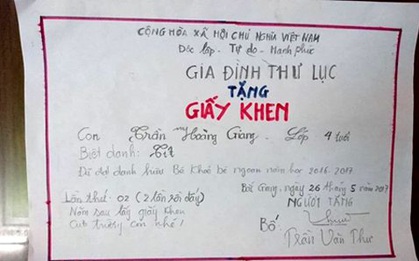 CỘNG HÒA XÃ HỘI CHỦ NGHĨA VIỆT NAM
Độc lập - Tự do - Hạnh phúc
GIA ĐÌNH THƯ LỤC
TẶNG
GIẤY KHEN
Con Trần Hoàng Giang. Lớp 4 tuổi
Biệt danh: Tít
Đã đạt danh hiệu Bé khoẻ bé ngoan năm học 2016-2017
Lần thứ: 02 (2 lần rồi đấy)
Năm sau lấy giấy khen
trường con nhé!
Bắc Giang, ngày 26 tháng 5 năm 2017
NGƯỜI TẶNG
Bố
Trần Văn Thư